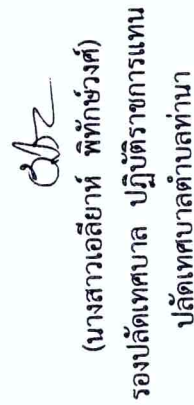 (นางสาวเอลียาห์ พิทักษ์วงศ์)
รองปลัดเทศบาล ปฏิบัติราชการแทน
ปลัดเทศบาลตำบลท่านา